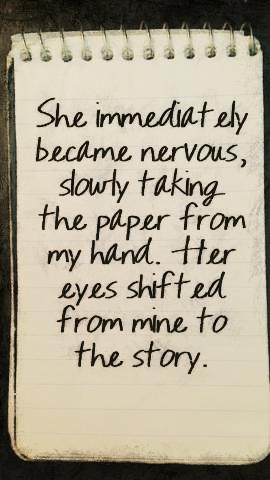 She immediately
became nervous,
slowly taking
the paper from
my hand. Her
eyes shifted
from mine to
the story.